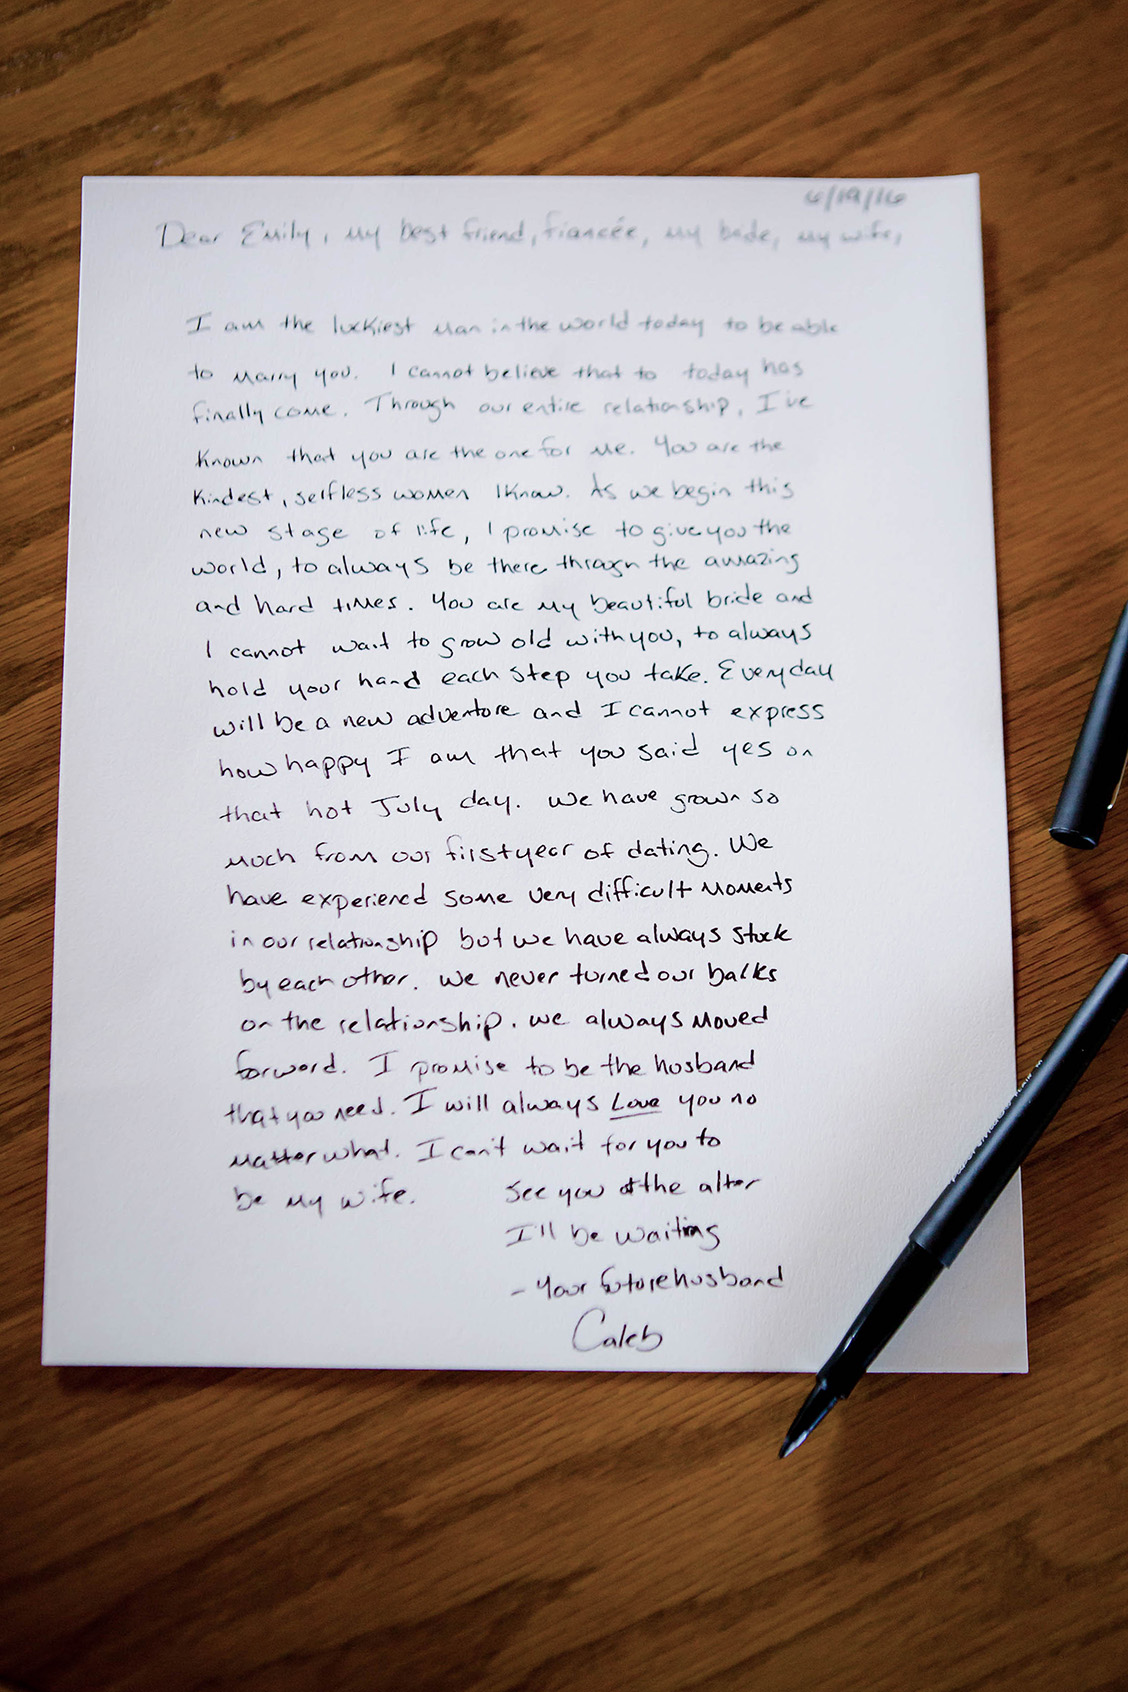 6/19/16
Dear Emily, my best friend, fiancée, my bride, my wife,
I am the luckiest man in the world today to be able
to marry you. I cannot believe that to today has
finally come. Through our entire relationship, I've
known that you are the one for me. You are the
kindest, selfless women I know. As we begin this
new stage of life, I promise to give you the
world, to always be there through the amazing
and hard times. You are my beautiful bride and
I cannot wait to grow old with you, to always
hold your hand each step you take. Everyday
will be a new adventure and I cannot express
how happy I am that you said yes on
that hot July day. We have grown so
much from our first year of dating. We
have experienced some very difficult moments
in our relationship but we have always stuck
by each other. We never turned our backs
on the relationship. We always moved
forward. I promise to be the husband
that you need. I will always Love you no
matter what. I can't wait for you to
be my wife. See you at the alter
I'll be waiting
- Your future husband
Caleb